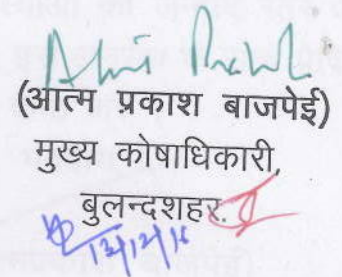 (आत्म प्रकाश बाजपेई)
मुख्य कोषाधिकारी,
बुलन्दशहर.